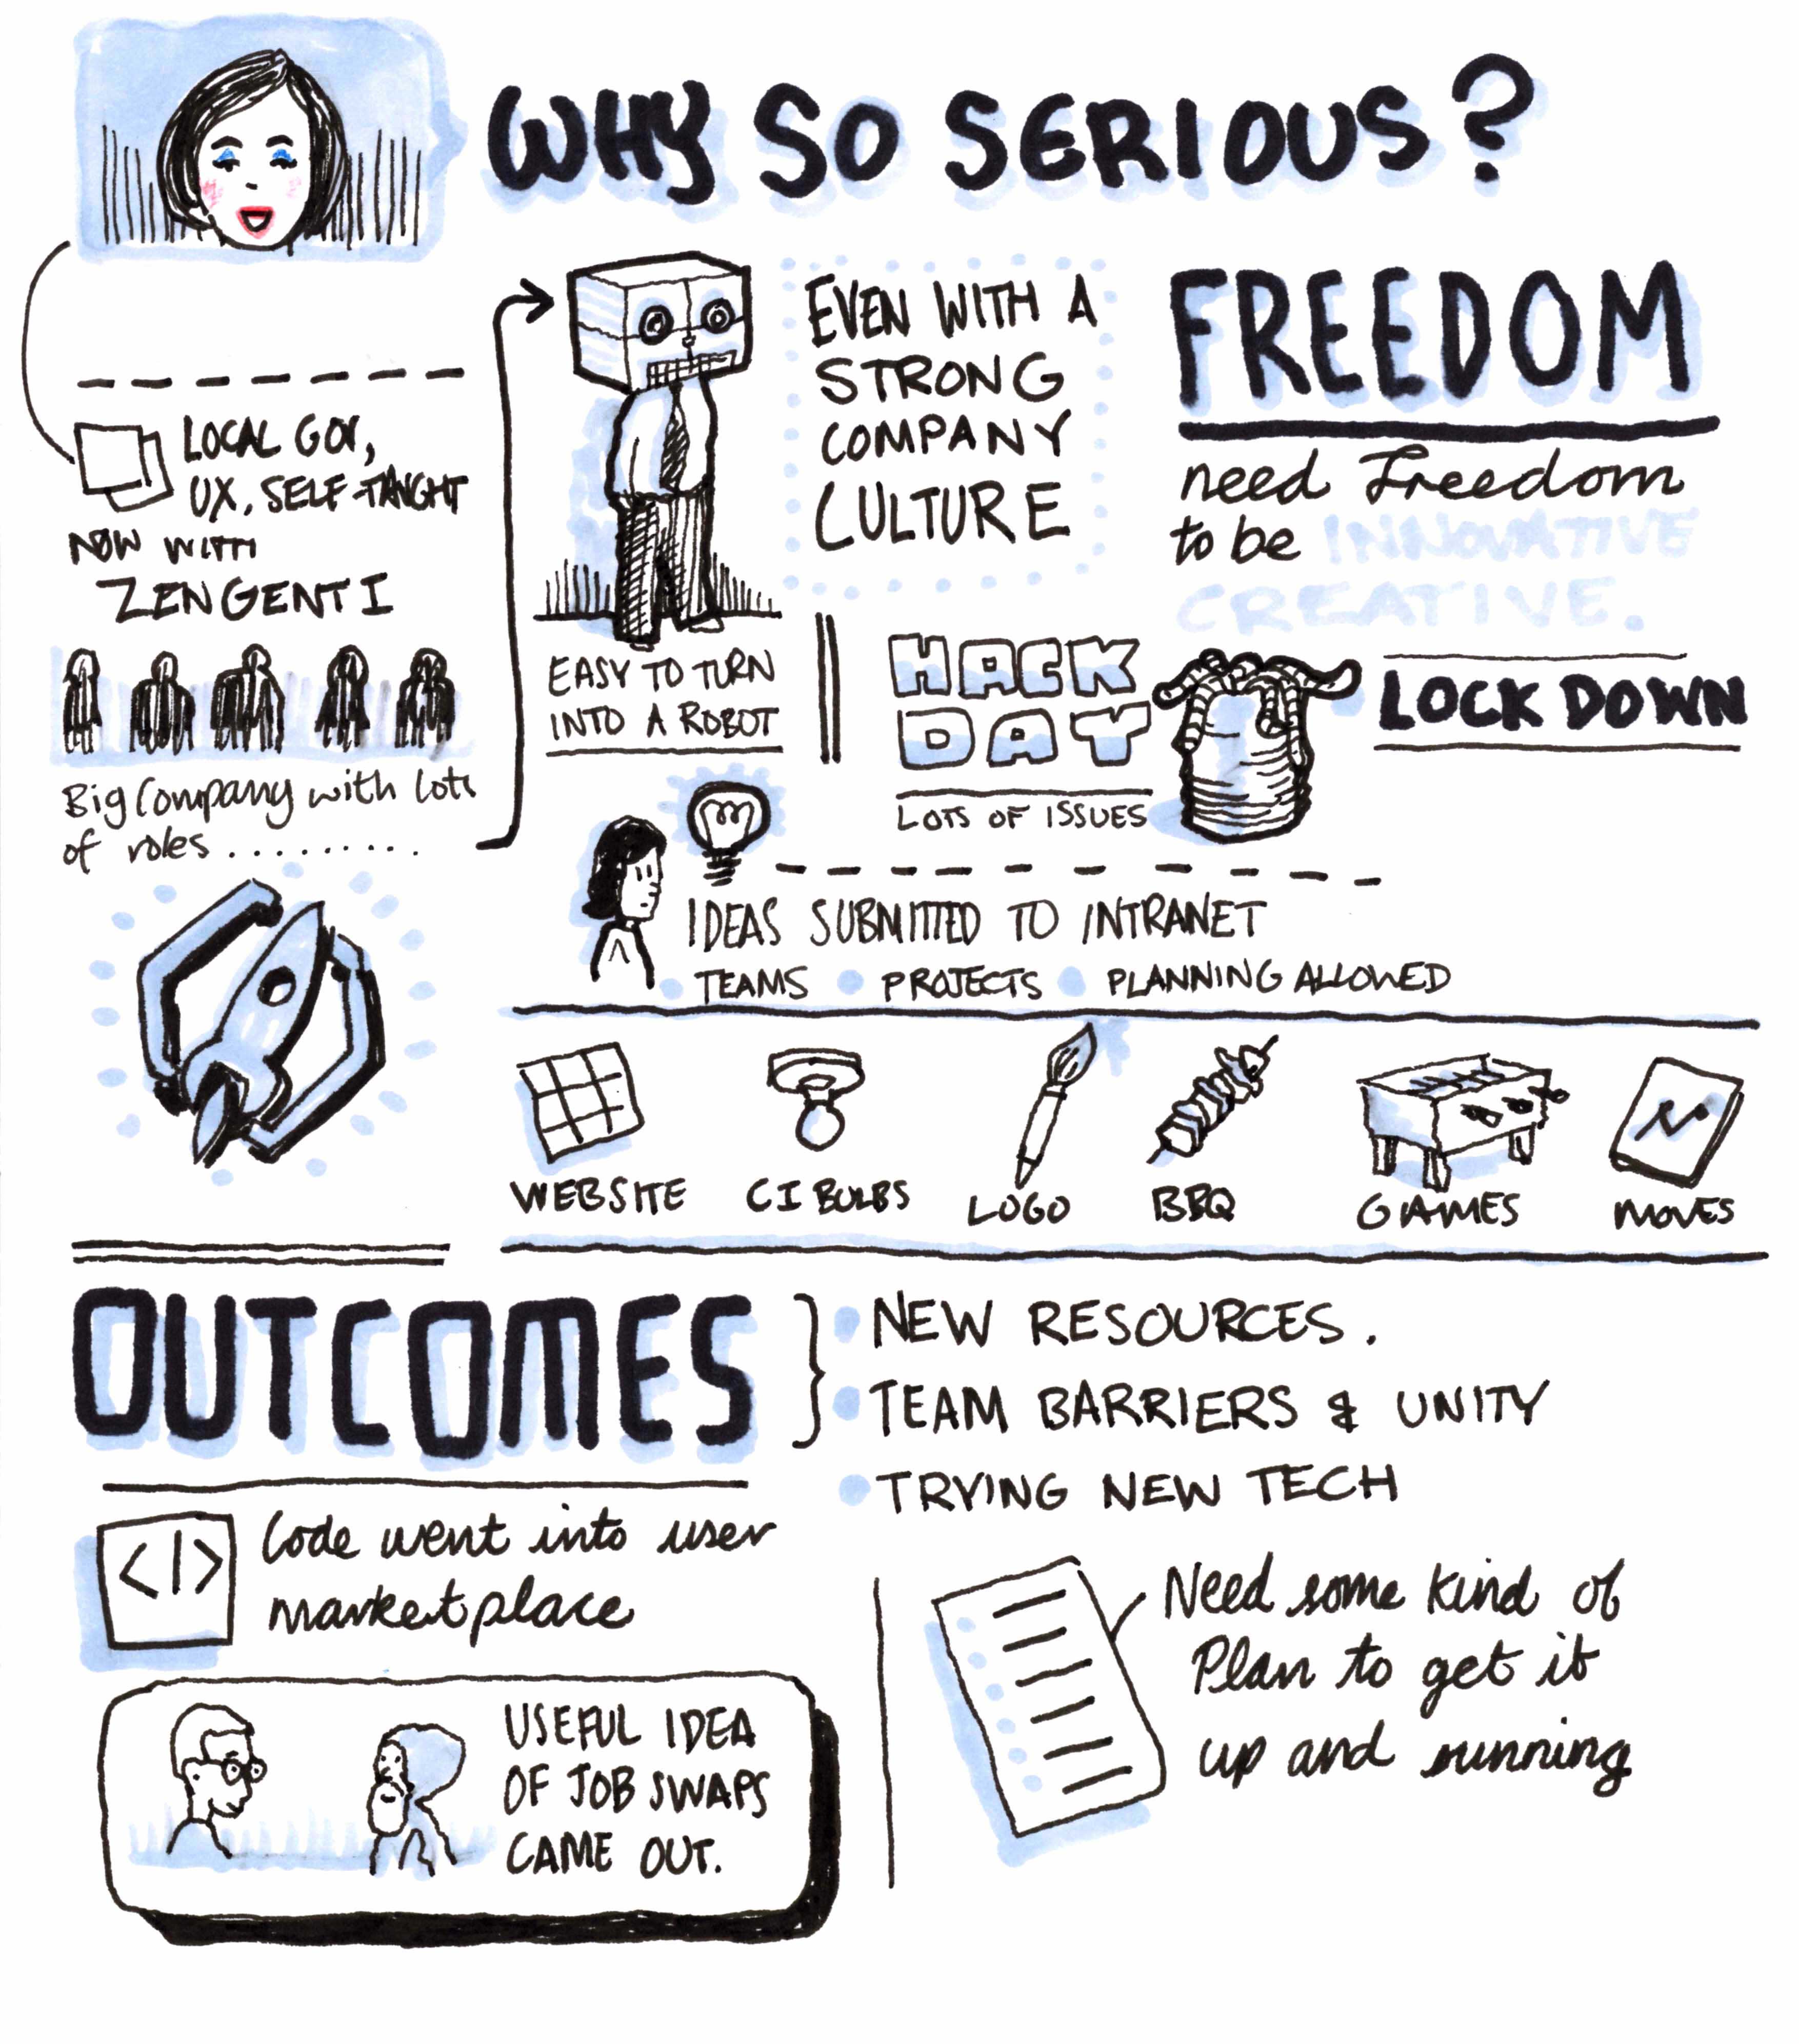 WHY SO SERIOUS?
LOCAL GOV,
UX, SELF-TAUGHT
NOW WITH
ZENGENTI
Big Company with lots
of roles .........
EASY TO TURN
INTO A ROBOT
EVEN WITH A
STRONG
COMPANY
CULTURE
FREEDOM
need freedom
to be INNOVATIVE
CREATIVE.
HACK
DAY
LOTS OF ISSUES
LOCK DOWN
IDEAS SUBMITTED TO INTRANET
TEAMS PROJECTS PLANNING ALLOWED
WEBSITE CI BULBS LOGO BBQ GAMES MOVES
OUTCOMES
NEW RESOURCES.
TEAM BARRIERS & UNITY
TRYING NEW TECH
<|>
Code went into user
marketplace
USEFUL IDEA
OF JOB SWAPS
CAME OUT.
Need some kind of
Plan to get it
up and running